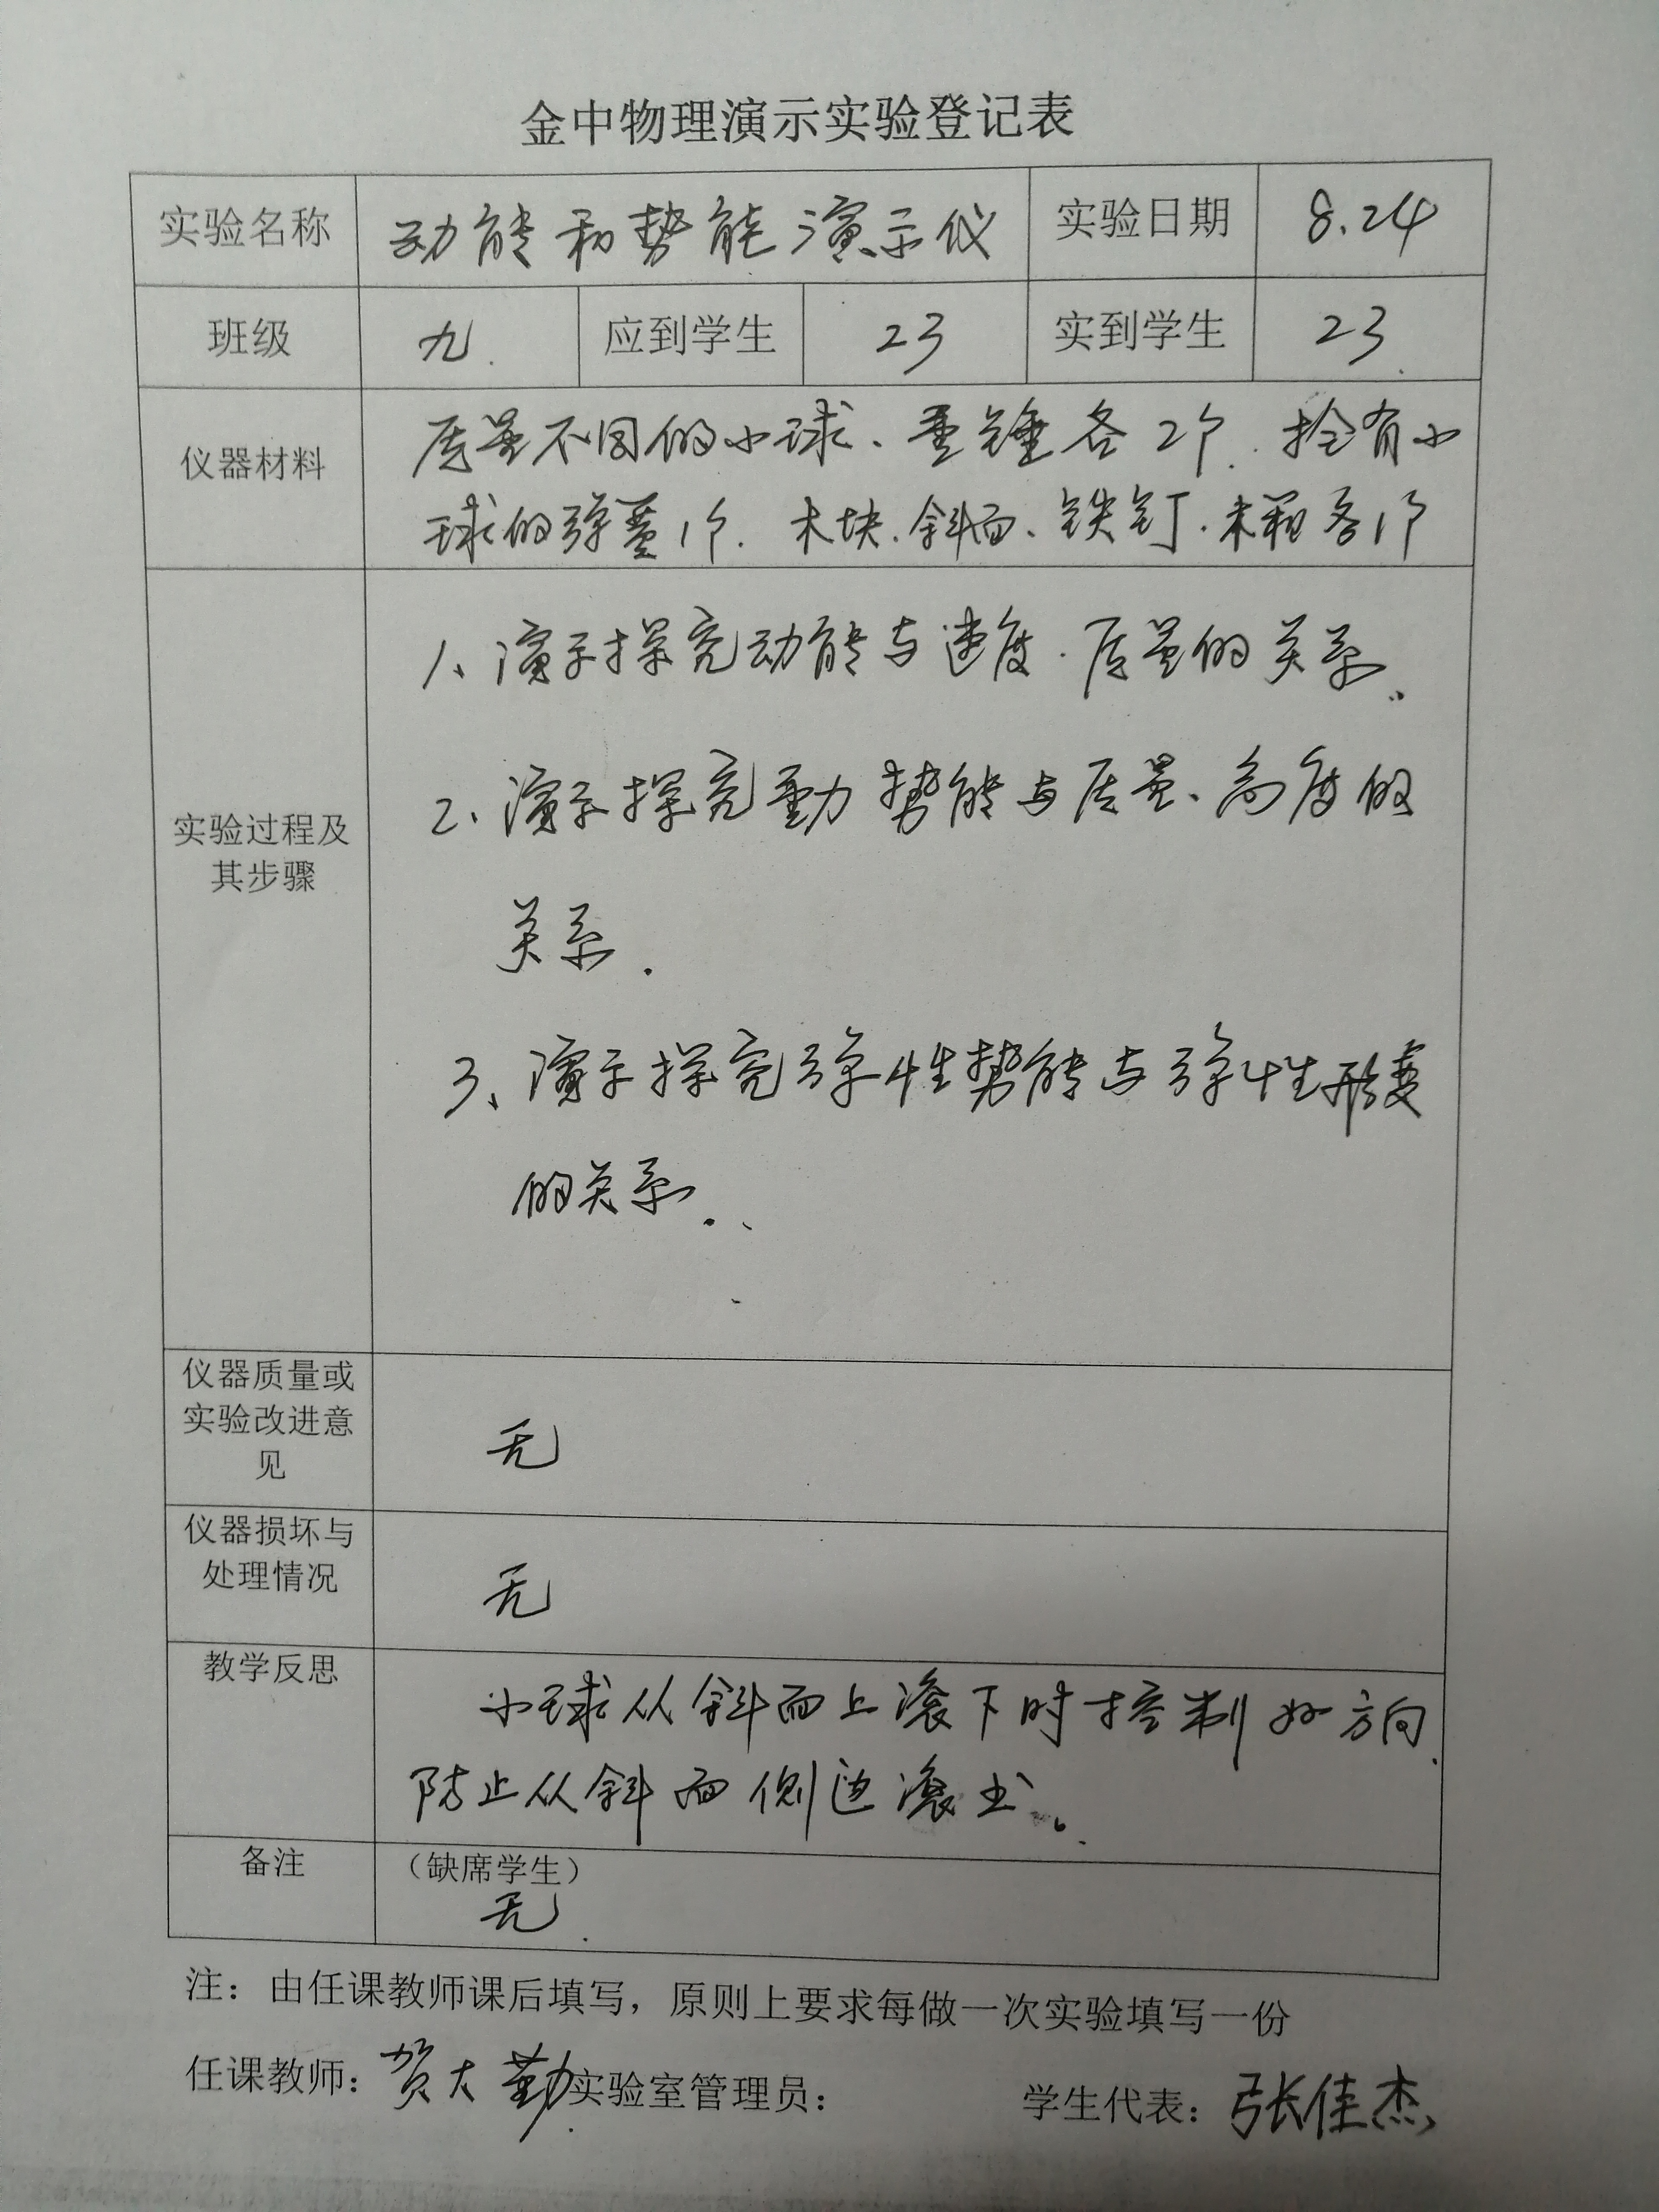 金中物理演示实验登记表
实验名称 动能和势能演示仪 实验日期 8.24
班级 九 应到学生 23 实到学生 23
仪器材料 质量不同的小球、重锤各2个. 拴有小
球的弹簧1个. 木块.斜面、铁钉.木.各1个
1、演示探究动能与速度.质量的关系.
2、演示探究重力势能与质量、高度的
实验过程及
其步骤
关系.
3、演示探究弹性势能与弹性形变
的关系.
仪器质量或
实验改进意
见
无
仪器损坏与
处理情况
无
教学反思
小球从斜面上滚下时控制好方向
防止从斜面侧边滚出。
备注 （缺席学生）
无.
注：由任课教师课后填写，原则上要求每做一次实验填写一份
任课教师：贺大勤 实验室管理员： 学生代表：张佳杰